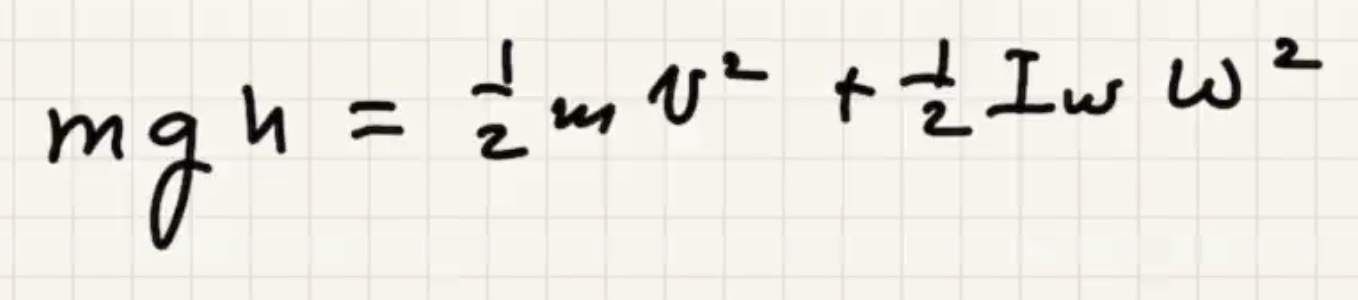 mgh = ½mv² + ½I_w ω²